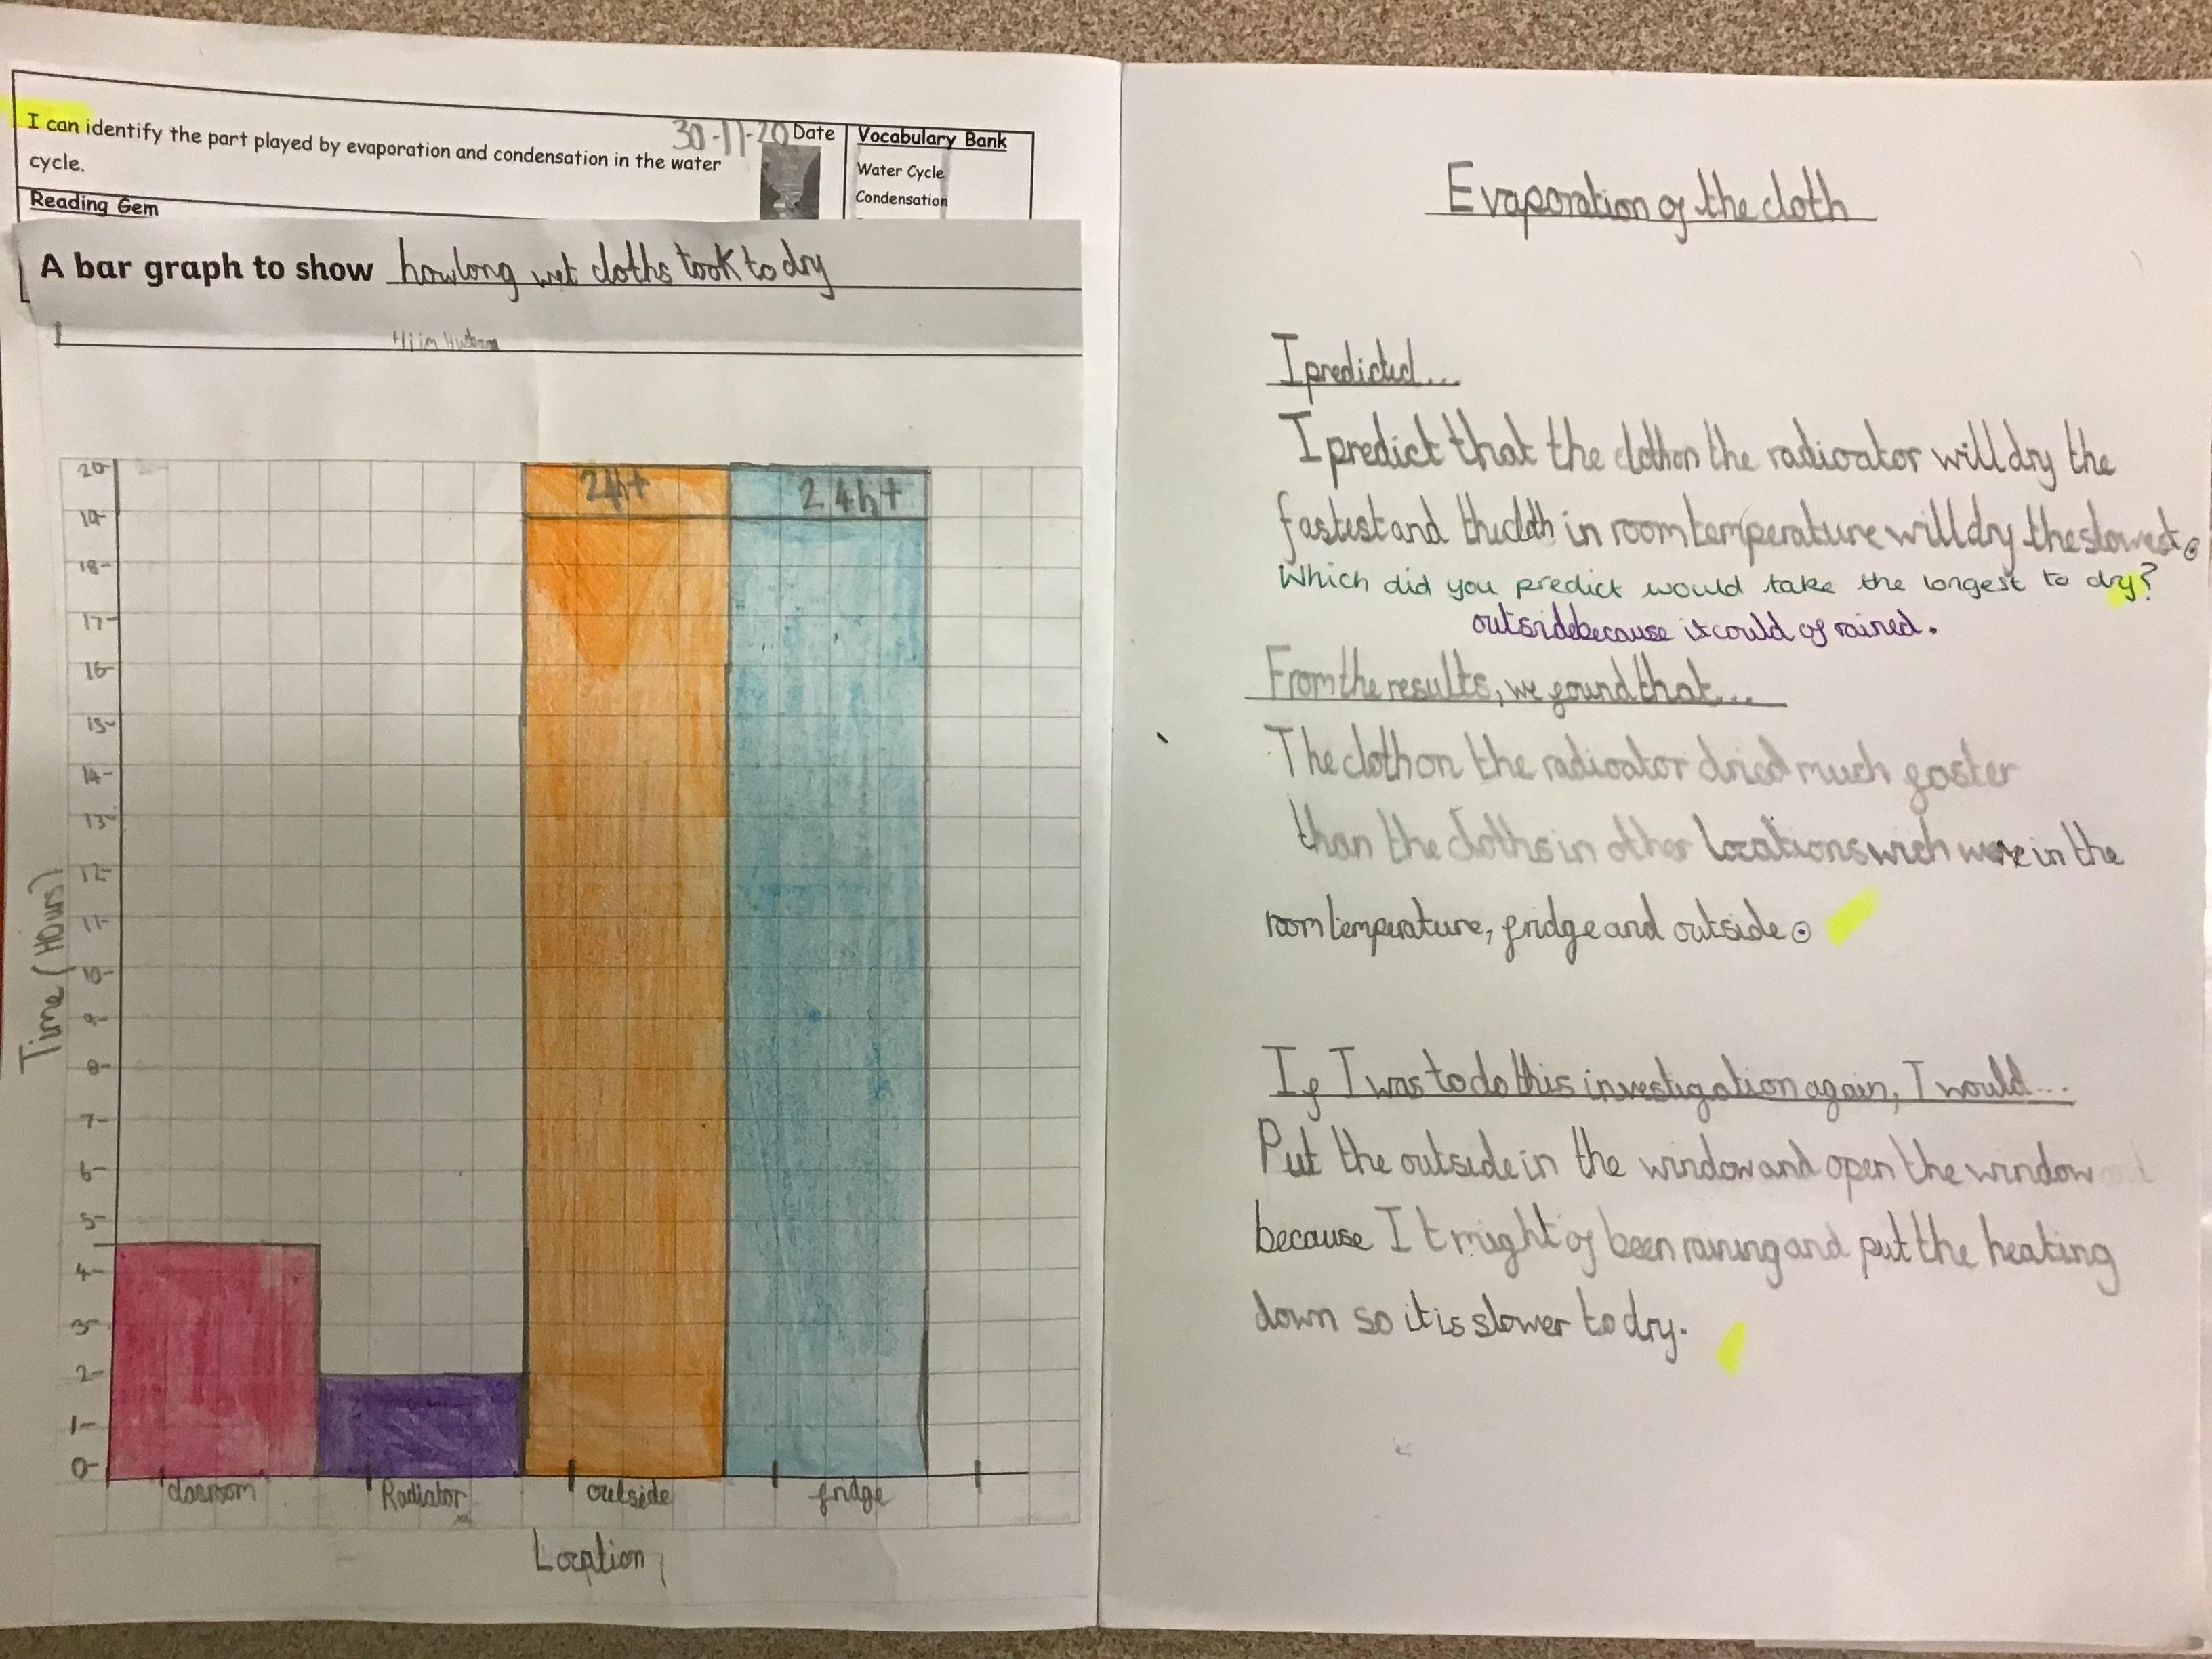 I can identify the part played by evaporation and condensation in the water
cycle.
30-11-20 Date
Vocabulary Bank
Water Cycle
Condensation
Reading Gem
A bar graph to show how long wet cloths took to dry
20
19
18
17
16
15
14
13
12
11
10
9
8
7
6
5
4
3
2
1
0
Time (Hours)
24h+
24h+
Radiator
outside
fridge
Location
Evaporation of the cloth
I predicted...
I predict that the cloth on the radioator will dry the
fastest and the cloth in room temperature will dry the slowest.
Which did you predict would take the longest to dry?
outside because it could of rained.
From the results, we found that...
The cloth on the radioator dried much faster
than the cloths in other locations wich were in the
room temperature, fridge and outside.
If I was to do this investigation again, I would...
Put the outside in the window and open the window
because It might of been raining and put the heating
down so it is slower to dry.